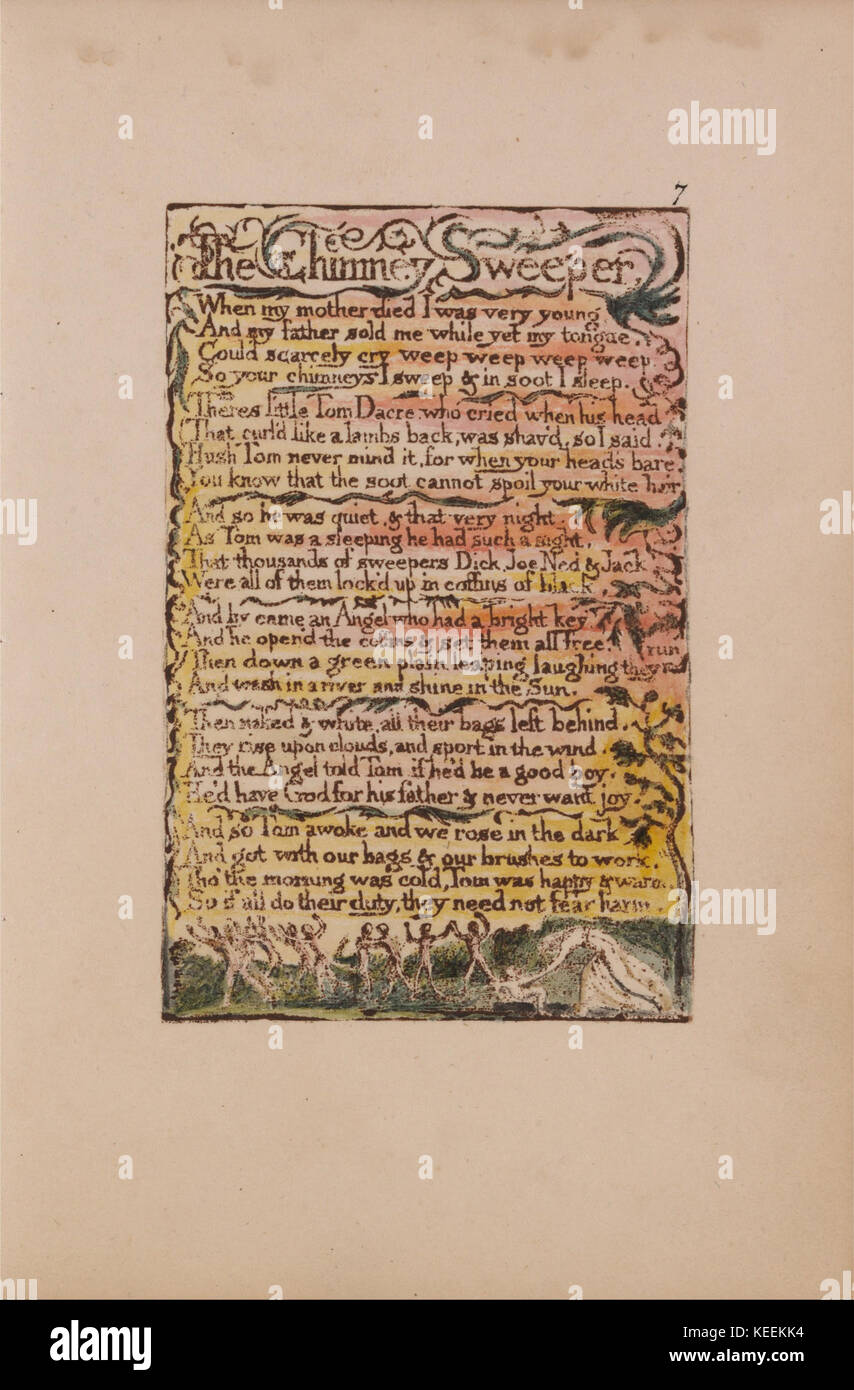 7
The Chimney Sweeper
When my mother died I was very young
And my father sold me while yet my tongue.
Could scarcely cry weep weep weep weep.
So your chimneys I sweep & in soot I sleep.
Theres little Tom Dacre, who cried when his head
That curl'd like a lambs back, was shav'd, so I said.
Hush Tom never mind it, for when your head's bare,
You know that the soot cannot spoil your white hair
And so he was quiet, & that very night.
As Tom was a sleeping he had such a sight,
That thousands of sweepers Dick, Joe, Ned & Jack
Were all of them lock'd up in coffins of black,
And by came an Angel who had a bright key,
And he open'd the coffins & set them all free.
Then down a green plain leaping laughing they run
And wash in a river and shine in the Sun.
Then naked & white, all their bags left behind.
They rise upon clouds, and sport in the wind.
And the Angel told Tom, if he'd be a good boy,
He'd have God for his father & never want joy.
And so Tom awoke and we rose in the dark
And got with our bags & our brushes to work.
Tho' the morning was cold, Tom was happy & warm.
So if all do their duty, they need not fear harm.
a
alamy
alamy
Image ID: KEEKK4
www.alamy.com